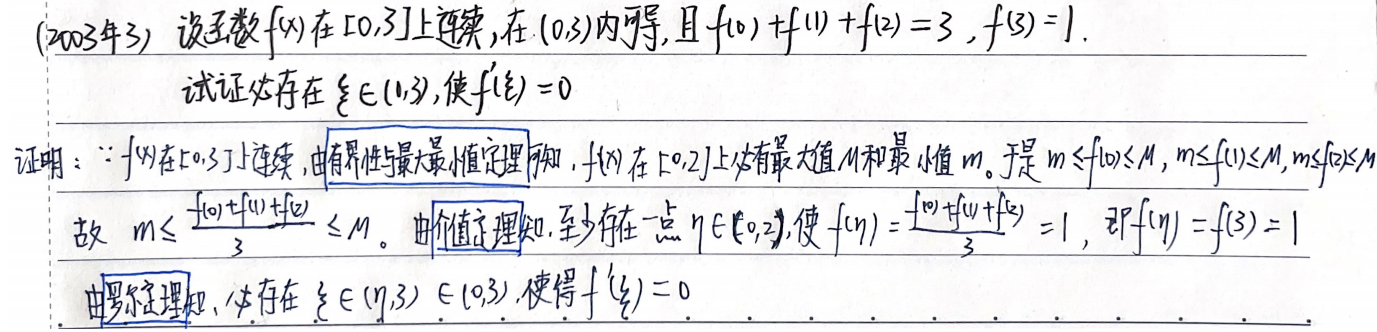 (2003年3) 设函数f(x)在[0,3]上连续,在(0,3)内可导,且f(0)+f(1)+f(2)=3,f(3)=1.
试证必存在ξ∈(0,3),使f'(ξ)=0
证明:∵f(x)在[0,3]上连续,由有界性与最大最小值定理可知,f(x)在[0,2]上必有最大值M和最小值m。于是m≤f(0)≤M,m≤f(1)≤M,m≤f(2)≤M
故 m≤(f(0)+f(1)+f(2))/3≤M。由介值定理知,至少存在一点η∈[0,2],使f(η)=(f(0)+f(1)+f(2))/3=1,即f(η)=f(3)=1
由罗尔定理知,必存在ξ∈(η,3)∈(0,3),使得f'(ξ)=0